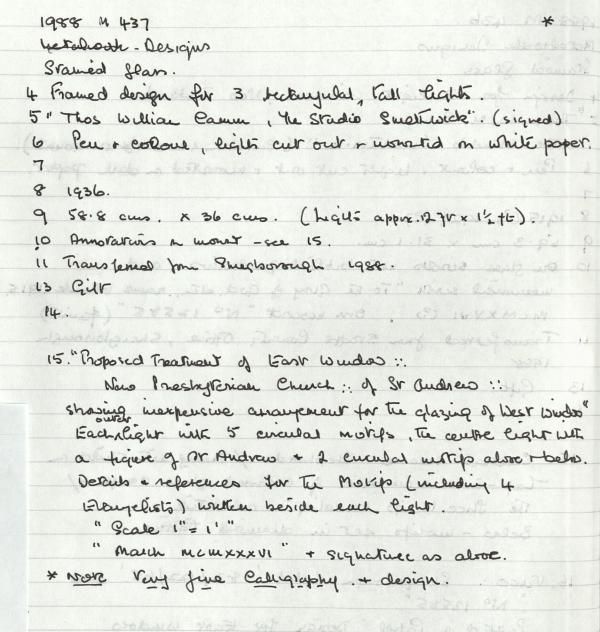 1988 M 437 *
Sketchbook - Designs
Stained Glass.
4 Framed design for 3 rectangular, tall lights.
5 "Thos William Camm, The Studio Smethwick". (signed)
6 Pen + colour, lights cut out + mounted on white paper.
7
8 1936.
9 58.8 cms. x 36 cms. (Lights appx. 12 7/8 x 1½ ft).
10 Annotations on mount - see 15.
11 Transferred from Shugborough 1988.
13 Gift
14.
15. "Proposed Treatment of East Window ::
New Presbyterian Church :: of St Andrew ::
showing inexpensive arrangement for the glazing of West Window"
Each outer light with 5 circular motifs, the centre light with
a figure of St Andrew + 2 circular motifs above + below.
Details + references for the Motifs (including 4
Evangelists) written beside each light.
"Scale 1" = 1'"
"March MCMXXXVI" + signature as above.
* NOTE Very fine Calligraphy. + design.